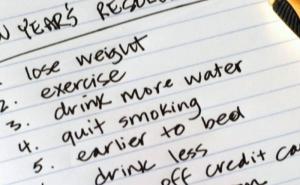 YEAR'S
lose weight
2. exercise
3. drink more water
4. quit smoking
5. earlier to bed
drink less
off credit